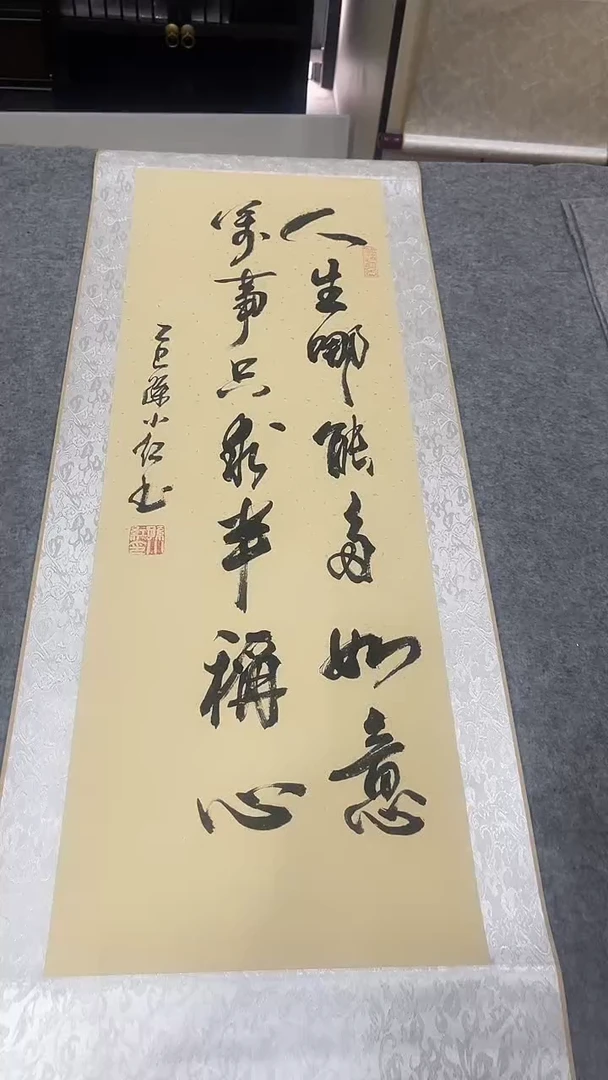 人生哪能多如意
萬事只求半稱心
乙巳孫小红书